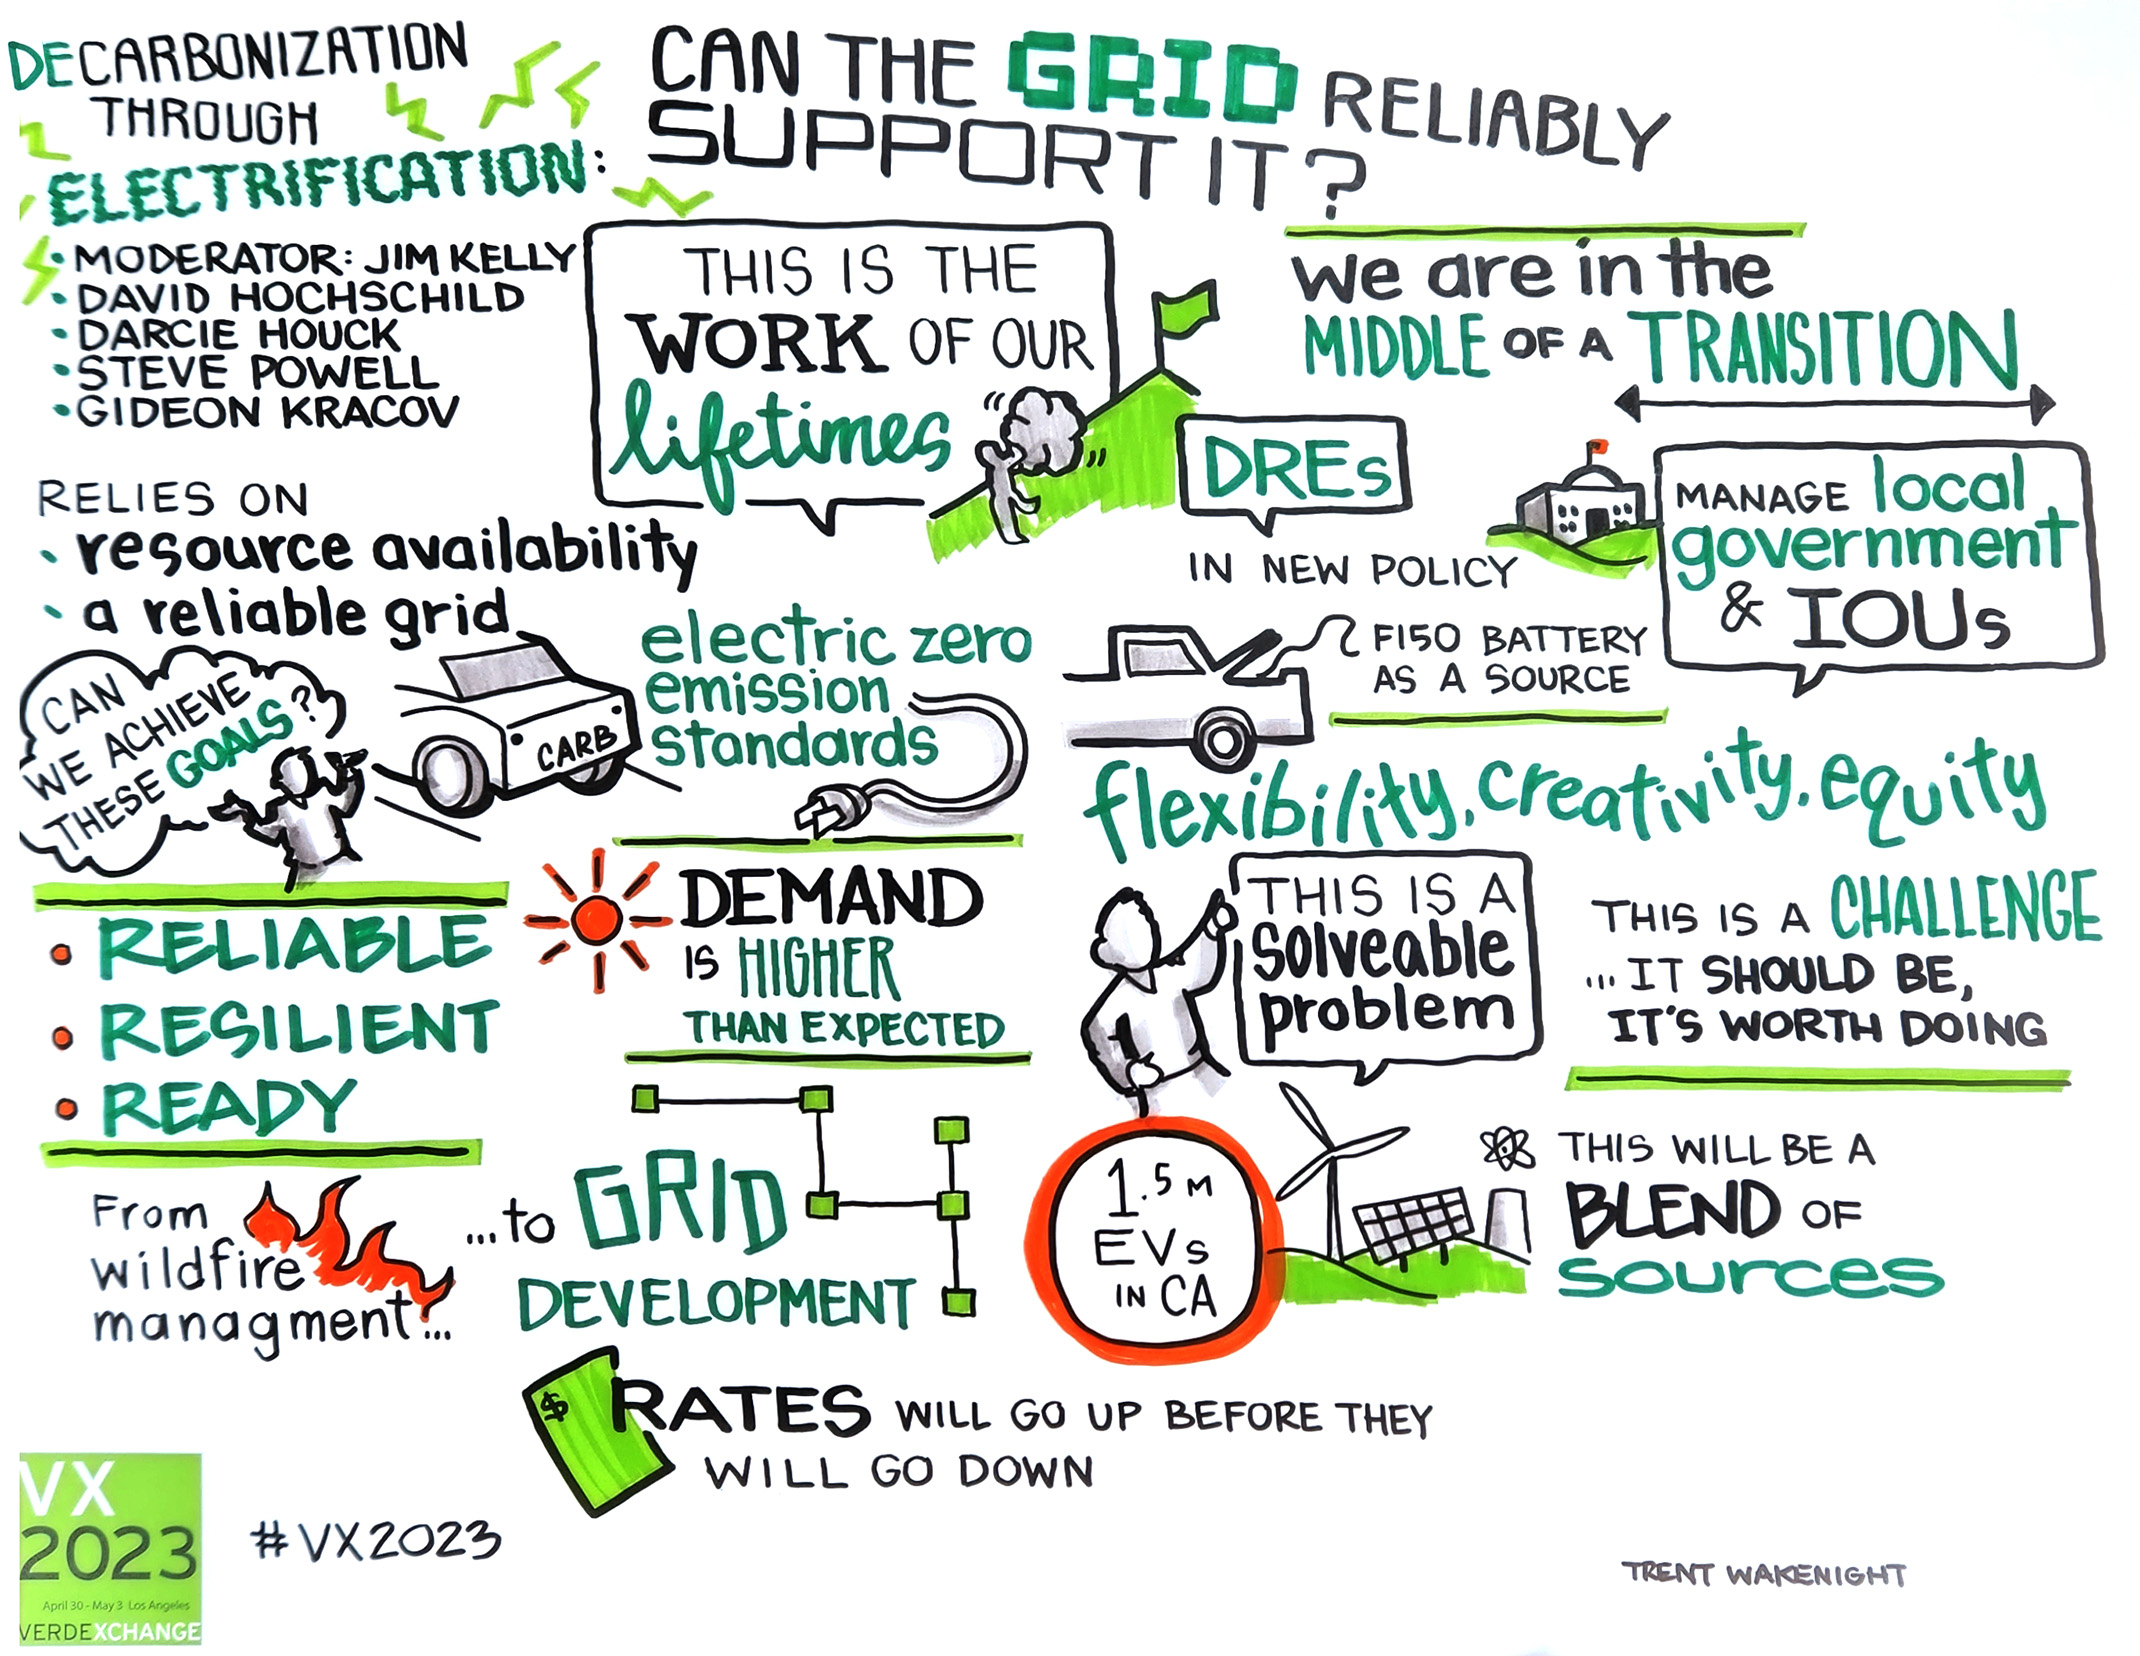 DECARBONIZATION
THROUGH
ELECTRIFICATION:
CAN THE GRID RELIABLY
SUPPORT IT?
• MODERATOR: JIM KELLY
• DAVID HOCHSCHILD
• DARCIE HOUCK
• STEVE POWELL
• GIDEON KRACOV
THIS IS THE
WORK OF OUR
lifetimes
we are in the
MIDDLE OF A TRANSITION
DREs
IN NEW POLICY
MANAGE local
government
& IOUs
RELIES ON
• resource availability
• a reliable grid
CAN
WE ACHIEVE
THESE GOALS?
CARB
electric zero
emission
standards
F150 BATTERY
AS A SOURCE
flexibility, creativity, equity
• RELIABLE
• RESILIENT
• READY
DEMAND
IS HIGHER
THAN EXPECTED
THIS IS A
solveable
problem
THIS IS A CHALLENGE
...IT SHOULD BE,
IT'S WORTH DOING
From
wildfire
managment...
...to GRID
DEVELOPMENT
1.5 M
EVs
IN CA
THIS WILL BE A
BLEND OF
sources
$ RATES WILL GO UP BEFORE THEY
WILL GO DOWN
VX
2023
April 30 - May 3 Los Angeles
VERDEXCHANGE
#VX2023
TRENT WAKENIGHT